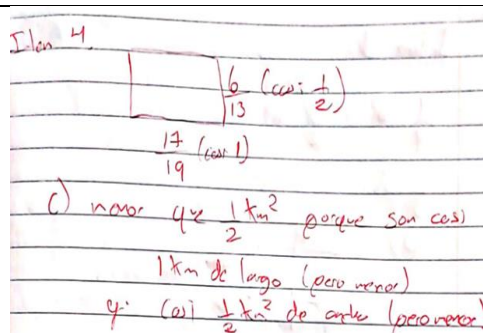 Item 4.
6/13 (casi 1/2)
17/19 (casi 1)
c) menor que 1/2 km² porque son casi
1 km de largo (pero menor)
y casi 1/2 km² de ancho (pero menor)